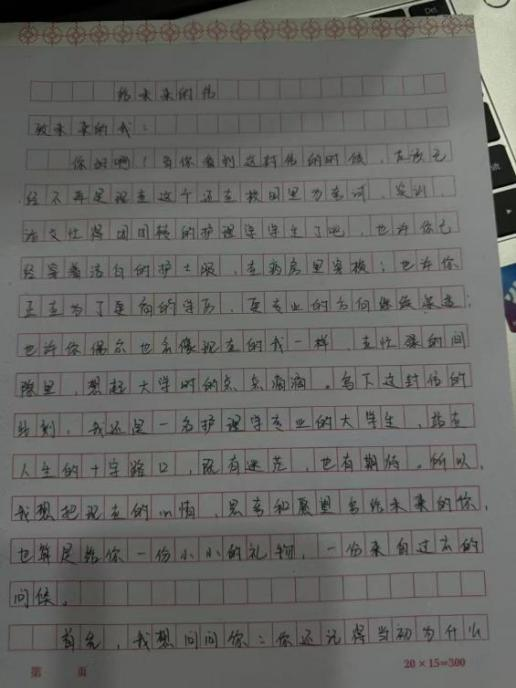 给未来的信
致未来的我：
你好啊！当你看到这封信的时候，应该已
经不再是现在这个还在校园里为考试、实训、
论文忙得团团转的护理学学生了吧。也许你已
经穿着洁白的护士服，在病房里穿梭；也许你
正在为了更高的学历、更专业的方向继续奋进；
也许你偶尔也会像现在的我一样，在忙碌的间
隙里，想起大学时的点点滴滴。写下这封信的
时刻，我还是一名护理学专业的大学生，站在
人生的十字路口，既有迷茫，也有期待。所以，
我想把现在的心情、思考和愿望写给未来的你，
也算是给你一份小小的礼物，一份来自过去的
问候。
首先，我想问问你：你还记得当初为什么
第 页
20×15=300
Del